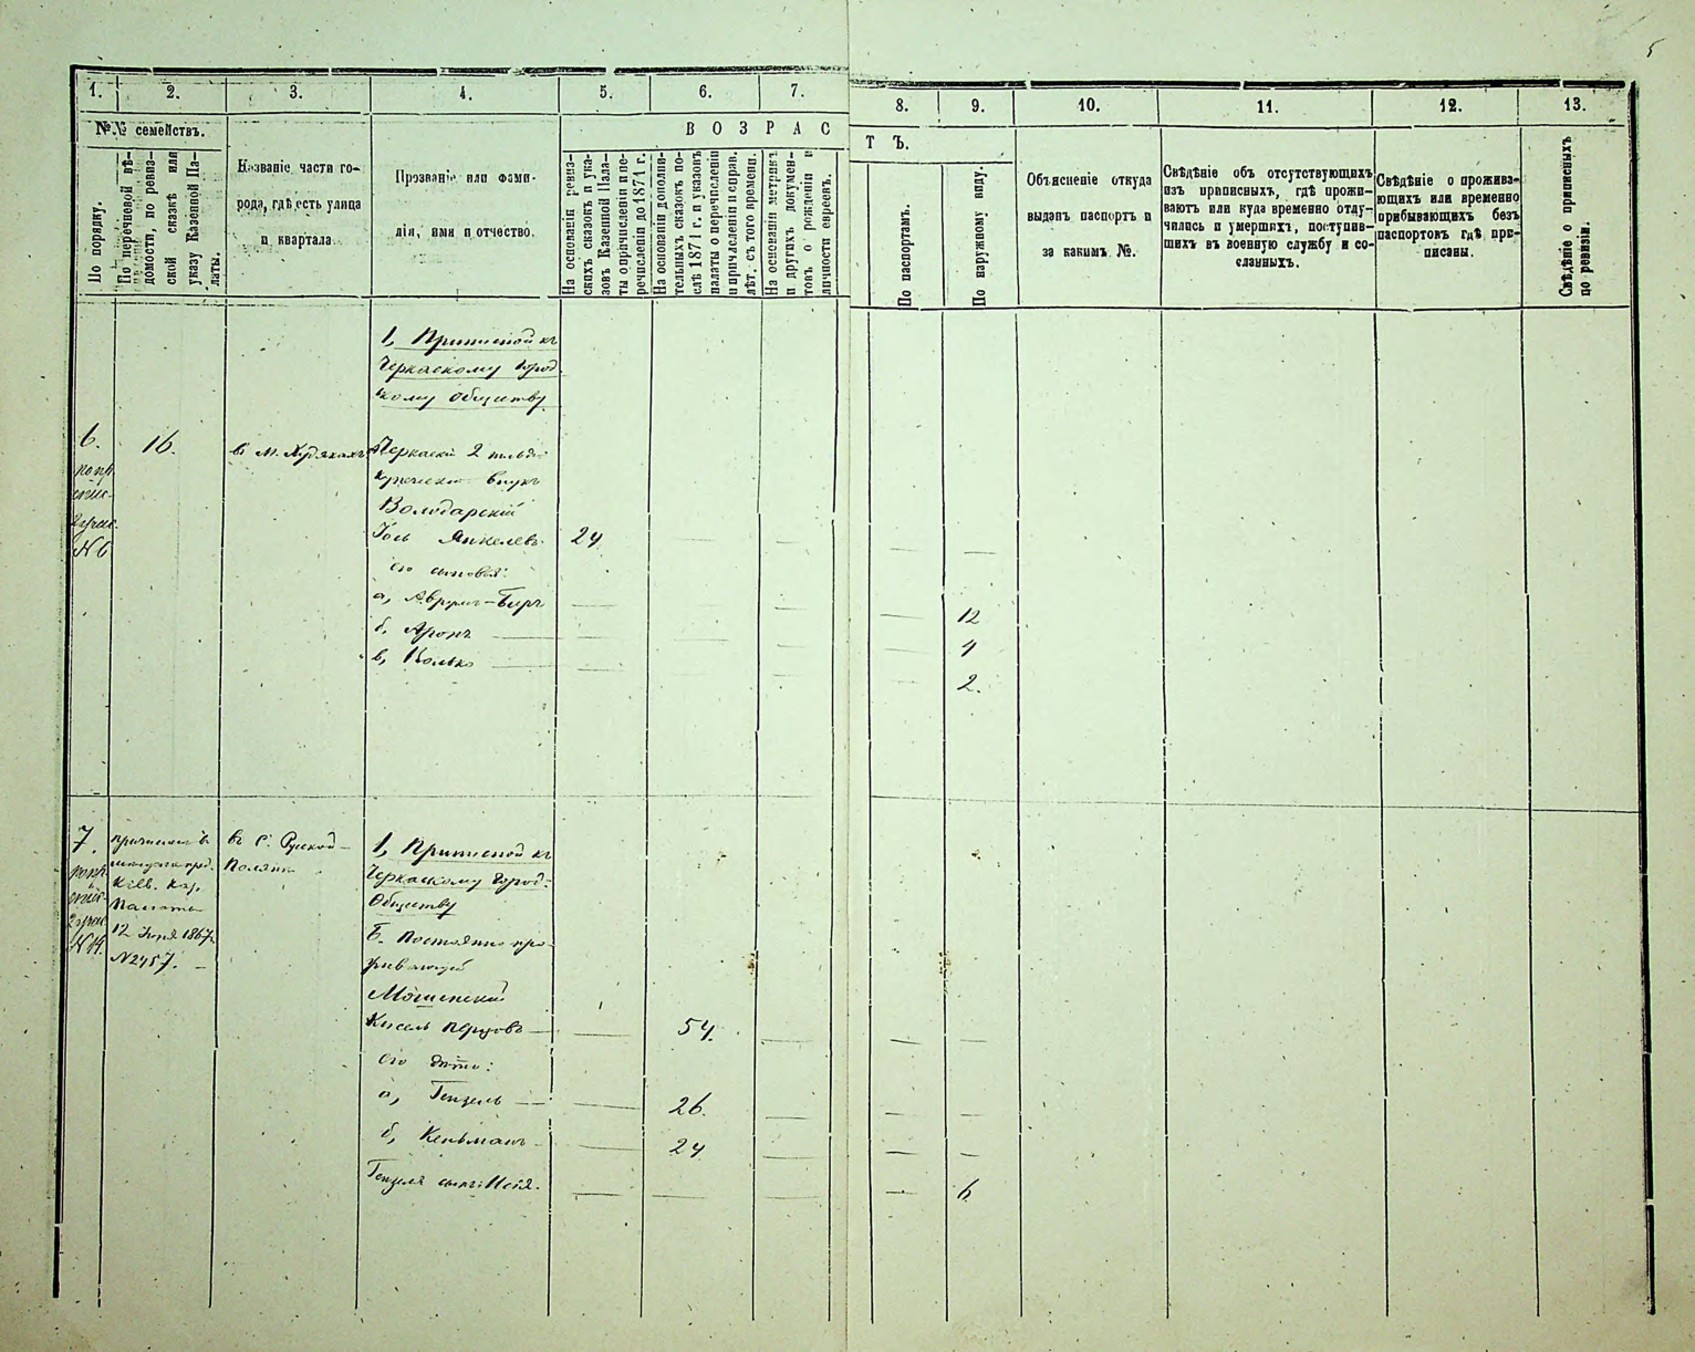 5
1. 2. 3. 4. 5. 6. 7. 8. 9. 10. 11. 12. 13.
№№ семействъ.
По порядку.
По перечневой вѣ-
домости, по ревиз-
ской сказкѣ или
указу Казенной Па-
латы.
Названіе части го-
рода, гдѣ есть улица
и квартала
Прозваніе или фами-
лія, имя и отчество.
ВОЗРАС
ТЪ.
На основаніи ревиз-
скихъ сказокъ и ука-
зовъ Казенной Пала-
ты о причисленіи и пе-
речисленіи до 1871 г.
На основаніи дополни-
тельныхъ сказокъ по-
слѣ 1871 г. и указовъ
палаты о перечисленіи
и причисленіи и справ.
лѣт. съ того времени.
На основаніи метрикъ
и другихъ докумен-
товъ о рожденіи и
личности евреевъ.
По паспортамъ.
По наружному виду.
Объясненіе откуда
выданъ паспортъ и
за какимъ №.
Свѣдѣніе объ отсутствующихъ
изъ приписныхъ, гдѣ прожи-
ваютъ или куда временно отлу-
чились и умершихъ, поступив-
шихъ въ военную службу и со-
сланныхъ.
Свѣдѣніе о прожива-
ющихъ или временно
прибывающихъ безъ
паспортовъ гдѣ при-
писаны.
Свѣдѣніе о приписныхъ
по ревизіи.
1, Приписной къ
Черкаскому город
скому обществу
6. 16. в М. Черкаскій 2 гильд
купеческій внукъ
Володарскій
Іось Янкелевъ 24
его сыновья:
а, Аврумъ-Беръ 12
б, Аронъ 4
в, Волько 2.
№ 6
7 въ С. Русской 1, Приписной къ
Полянѣ Черкаскому город:
Обществу
Киев. Каз.
Палаты
12 1867
№ 2457.
№ 14.
Б. Постоянно про
живающій
Мошенскій
Кисель Перцовъ 54.
его дѣти:
а, Гензель 26.
б, Кельманъ 24
Гензеля сынъ: 6